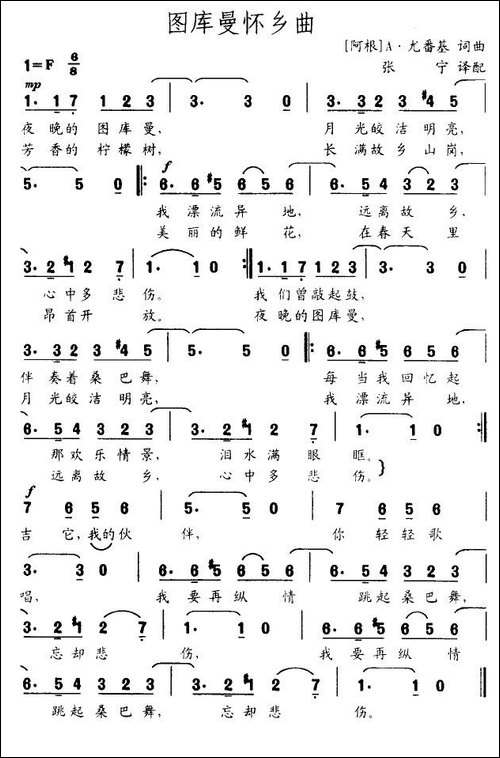 图库曼怀乡曲
[阿根]A·尤番基 词曲
1=F 6/8
张宁 译配
mp
1· 1 7 1 2 3 | 3· 3 0 | 3· 3 2 3 #4 5 |
夜晚的图库曼, 月光皎洁明亮,
芳香的柠檬树, 长满故乡山岗,
f
5· 5 0 |: 6· 6 #5 6 5 6 | 6· 5 4 3 2 3 |
我漂流异地, 远离故乡,
美丽的鲜花, 在春天里
3· 2 #1 2 7 | 1· 1 0 :| 1· 1 7 1 2 3 | 3· 3 0 |
心中多悲伤。 我们曾敲起鼓,
昂首开放。 夜晚的图库曼,
3· 3 2 3 #4 5 | 5· 5 0 |: 6· 6 #5 6 5 6 |
伴奏着桑巴舞, 每当我回忆起
月光皎洁明亮, 我漂流异地,
6· 5 4 3 2 3 | 3· 2 #1 2 7 | 1· 1 0 :|
那欢乐情景, 泪水满眼眶。
远离故乡, 心中多悲伤。}
f
7 6 5 6 | 5· 5 0 | 7 6 5 6 |
吉它,我的伙伴, 你轻轻歌
3· 3 0 | 6· 6 #5 6 5 6 | 6· 5 4 3 2 3 |
唱, 我要再纵情跳起桑巴舞,
3· 2 #1 2 7 | 1· 1 0 | 6· 6 #5 6 5 6 |
忘却悲伤, 我要再纵情
6· 5 4 3 2 3 | 3· 2 #1 2 7 | 1· 1 0 |
跳起桑巴舞, 忘却悲伤。